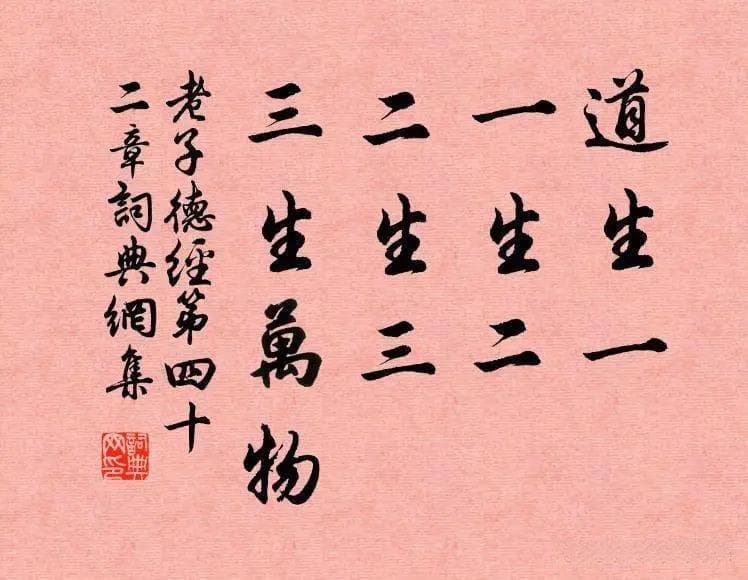 道生一
一生二
二生三
三生萬物
老子德經第四十
二章詞典網集
詞典网印